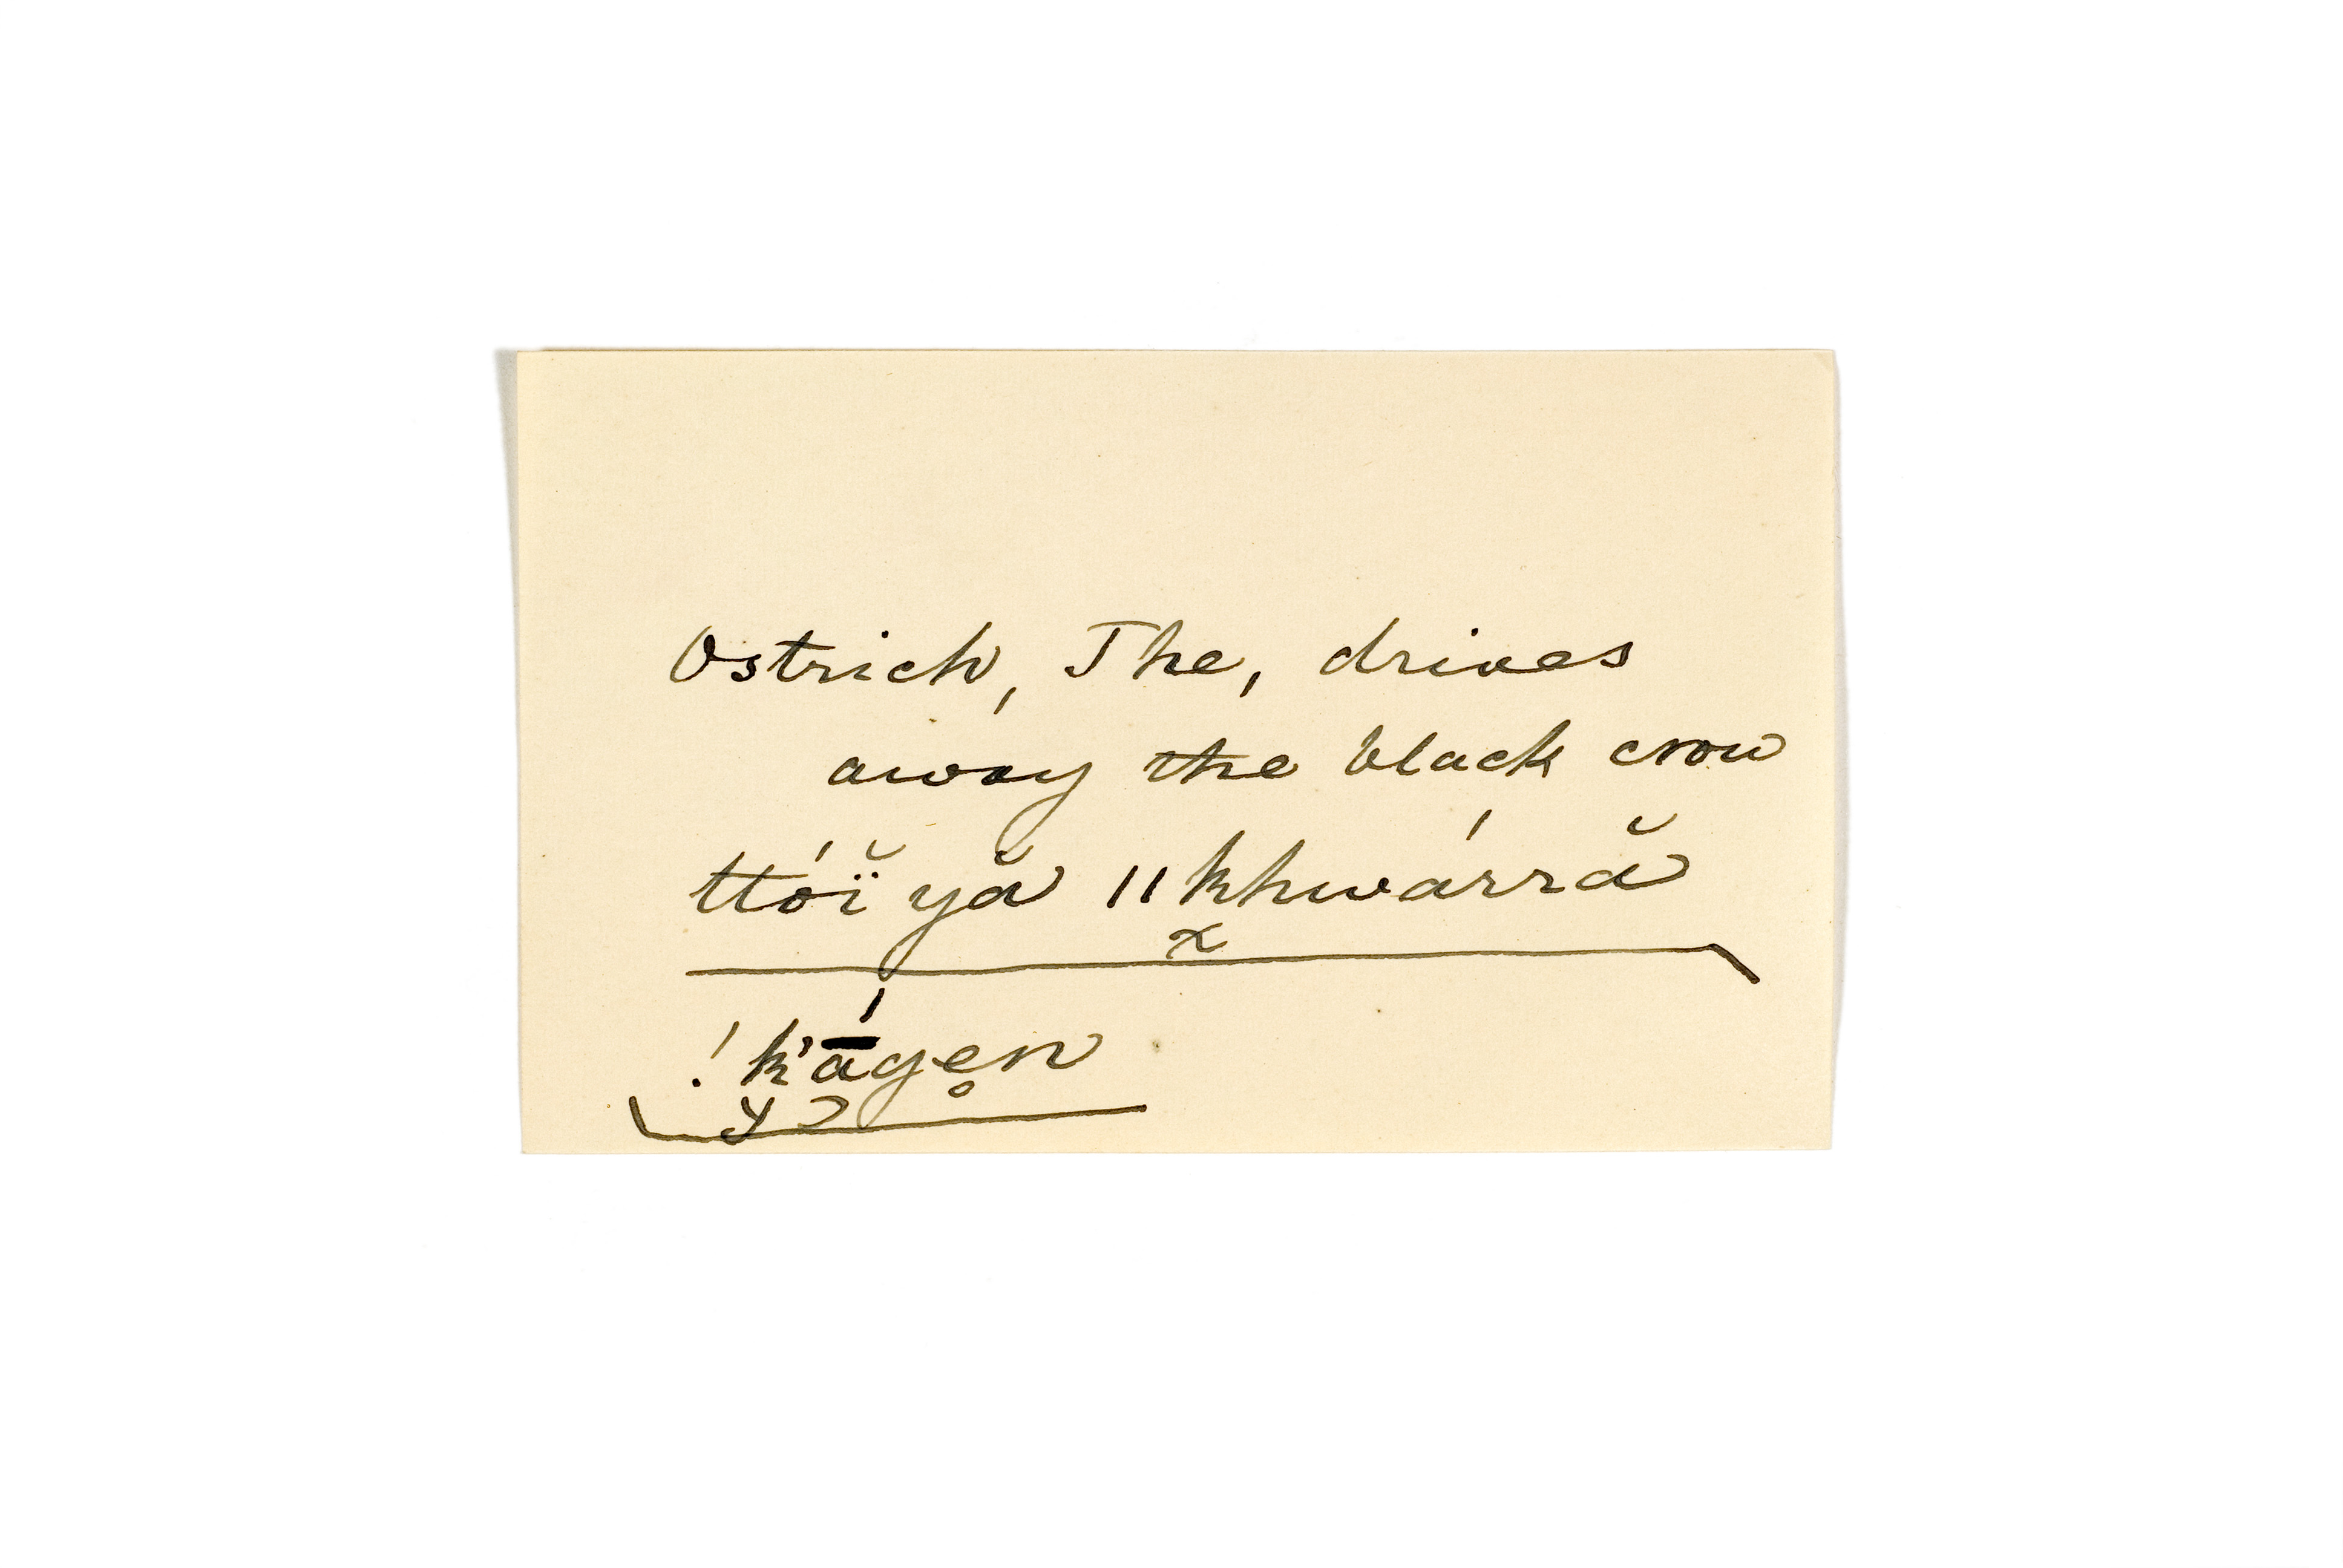 Ostrich, The, drives
away the black crow
ttóĭ̈ yă ǁkhwárră
!k'ā́gen